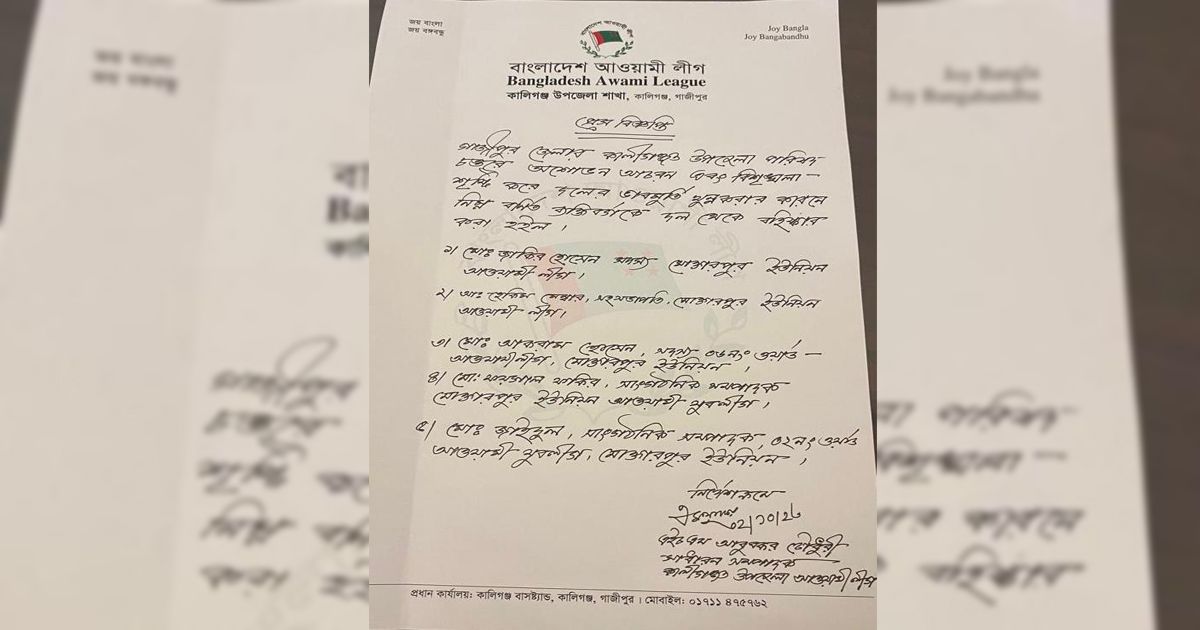 জয় বাংলা
জয় বঙ্গবন্ধু
Joy Bangla
Joy Bangabandhu
বাংলাদেশ আওয়ামী লীগ
বাংলাদেশ আওয়ামী লীগ
Bangladesh Awami League
কালিগঞ্জ উপজেলা শাখা, কালিগঞ্জ, গাজীপুর
প্রেস বিজ্ঞপ্তি
গাজীপুর জেলার কালীগঞ্জ উপজেলা পরিষদ
চত্তরে অশোভন আচরন এবং বিশৃঙ্খলা –
সৃষ্টি করে দলের ভাবমূর্তি ক্ষুন্ন করার কারনে
নিম্ন বর্নিত ব্যক্তিবর্গকে দল থেকে বহিষ্কার
করা হইল ।
১) মোঃ জাকির হোসেন সদস্য মোক্তারপুর ইউনিয়ন
আওয়ামী লীগ ।
২) আঃ হেকিম মেম্বার, সহসভাপতি, মোক্তারপুর ইউনিয়ন
আওয়ামী লীগ ।
৩) মোঃ আকরাম হোসেন, সদস্য ০৬নং ওয়ার্ড –
আওয়ামীলীগ, মোক্তারপুর ইউনিয়ন ।
৪) মোঃ ফকির, সাংগঠনিক সম্পাদক
মোক্তারপুর ইউনিয়ন আওয়ামী যুবলীগ ।
৫) মোঃ জাহিদুল, সাংগঠনিক সম্পাদক, ০২নং ওয়ার্ড
আওয়ামী যুবলীগ, মোক্তারপুর ইউনিয়ন ।
নির্দেশক্রমে
০২/১০/২৩
এইচ এম আবুবকর চৌধুরী
সাধারন সম্পাদক
কালীগঞ্জ উপজেলা আওয়ামী লীগ
প্রধান কার্যালয়: কালিগঞ্জ বাসষ্ট্যান্ড, কালিগঞ্জ, গাজীপুর । মোবাইল: ০১৭১১ ৪৭৫৭৬২